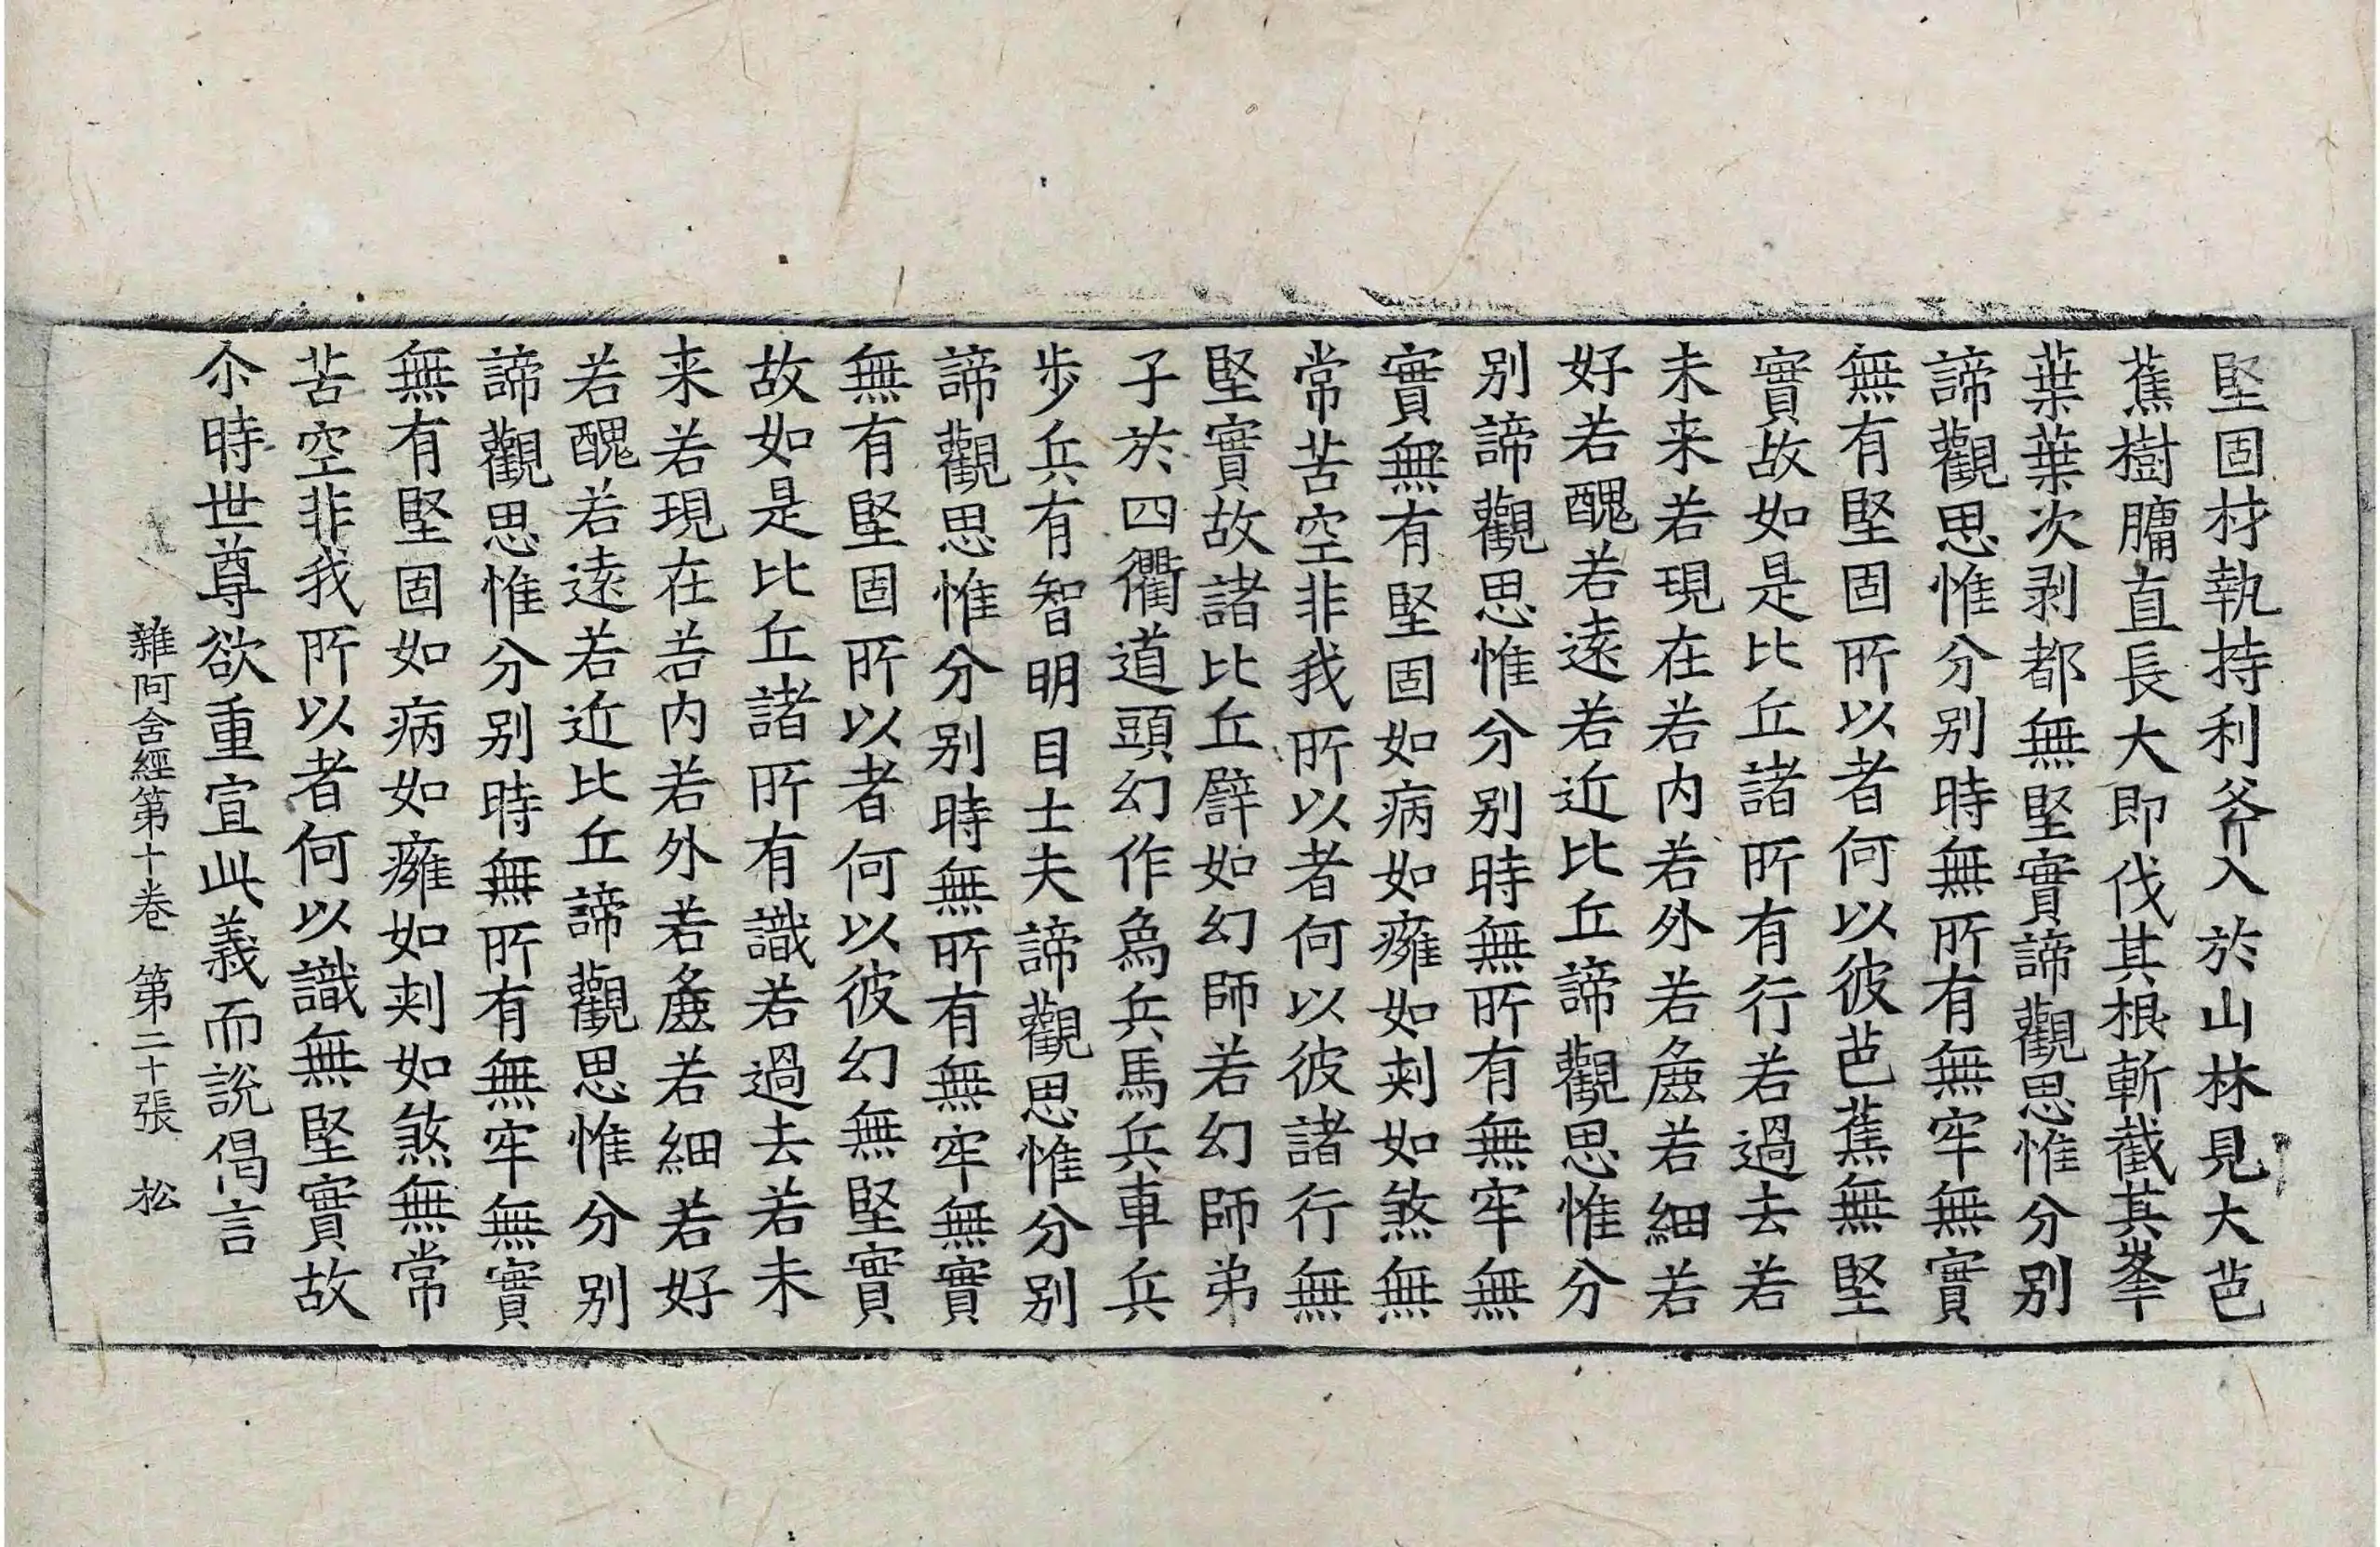 堅固材執持利斧入於山林見大芭
蕉樹𦟛直長大即伐其根斬截其峯
葉葉次剥都無堅實諦觀思惟分别
諦觀思惟分别時無所有無牢無實
無有堅固所以者何以彼芭蕉無堅
實故如是比丘諸所有行若過去若
未来若現在若内若外若麁若細若
好若醜若遠若近比丘諦觀思惟分
别諦觀思惟分别時無所有無牢無
實無有堅固如病如癰如刾如煞無
常苦空非我所以者何以彼諸行無
堅實故諸比丘譬如幻師若幻師弟
子於四衢道頭幻作為兵馬兵車兵
步兵有智明目士夫諦觀思惟分别
諦觀思惟分别時無所有無牢無實
無有堅固所以者何以彼幻無堅實
故如是比丘諸所有識若過去若未
来若現在若内若外若麁若細若好
若醜若遠若近比丘諦觀思惟分别
諦觀思惟分别時無所有無牢無實
無有堅固如病如癰如刾如煞無常
苦空非我所以者何以識無堅實故
尒時世尊欲重宣此義而說偈言
雜阿含經第十卷 第二十張 松